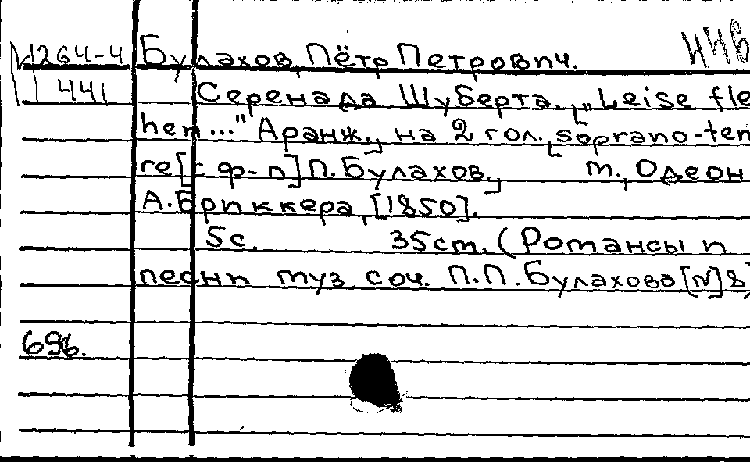 М264-4 Булахов, Пётр Петрович. 446
441 Серенада Шуберта. [„Leise fle
hen..." Аранж.] на 2 гол. [soprano-ten
re [с ф-п] П. Булахов.] М., Одеон
А. Бриккера, [1850].
5с. 35cm. (Романсы и
песни муз соч. П.П. Булахова [№] 8)
69б.